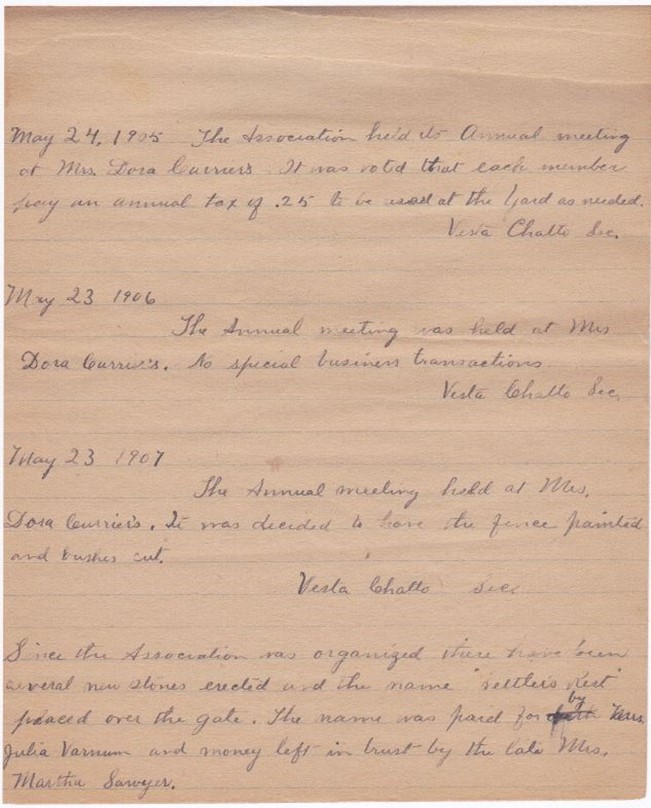 May 24, 1905 The Association held its Annual meeting
at Mrs. Dora Currier's. It was voted that each member
pay an annual tax of .25 to be used at the Yard as needed.
Vesta Chatto Sec.
May 23 1906
The Annual meeting was held at Mrs
Dora Currier's. No special business transactions.
Vesta Chatto Sec.
May 23 1907
The Annual meeting held at Mrs.
Dora Currier's. It was decided to have the fence painted
and bushes cut.
Vesta Chatto Sec.
Since the Association was organized there have been
several new stones erected and the name "Settler's Rest"
placed over the gate. The name was paid for by
Julia Varnum and money left in trust by the late Mrs.
Martha Sawyer.